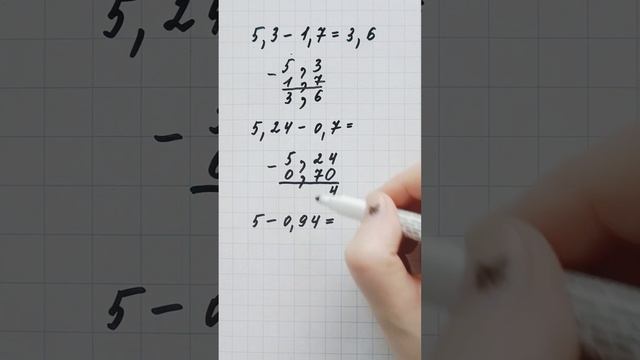 5,3 - 1,7 = 3,6
- 5,3
1,7
3,6
5,24 - 0,7 =
- 5,24
0,70
4
5 - 0,94 =